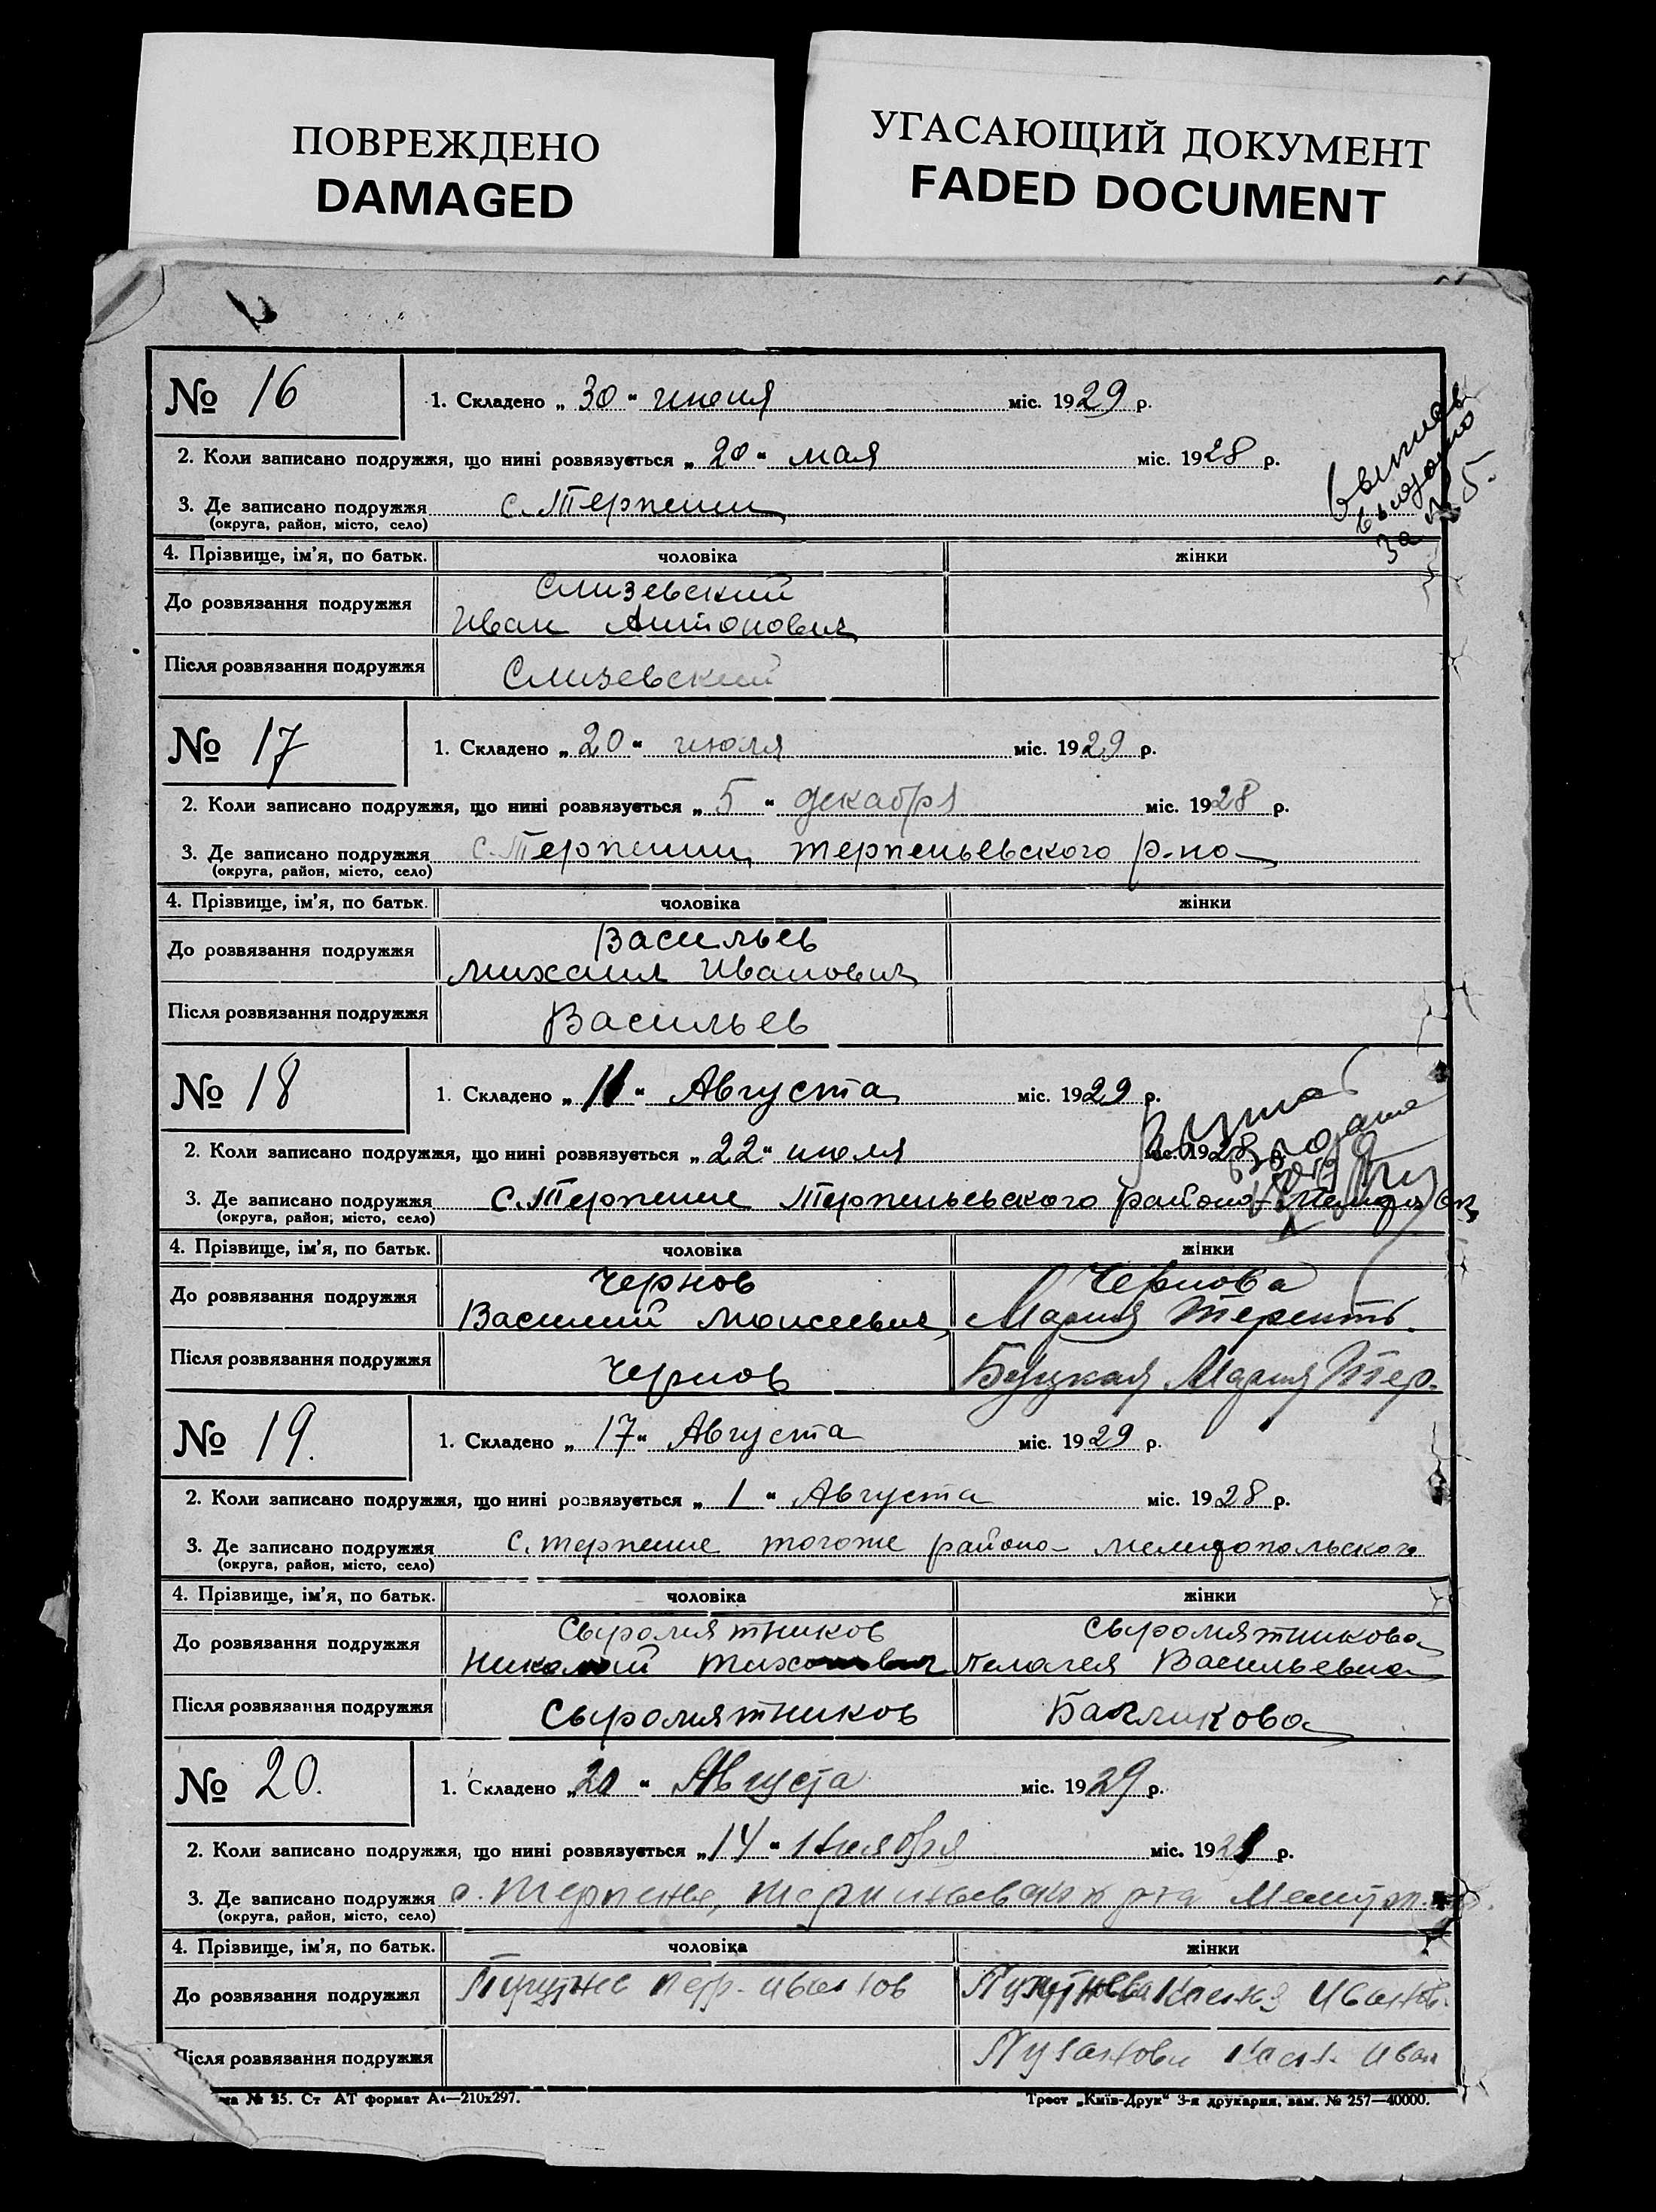 ПОВРЕЖДЕНО
DAMAGED
УГАСАЮЩИЙ ДОКУМЕНТ
FADED DOCUMENT
№ 16
1. Складено „ 30 " июня міс. 1929 р.
2. Коли записано подружжя, що нині розвязується „ 20 " мая міс. 1928 р.
3. Де записано подружжя с. Терпении
(округа, район, місто, село)
за № 5.
4. Прізвище, ім'я, по батьк. чоловіка жінки
До розвязання подружжя Слизевский
Иван Антонович
Після розвязання подружжя Слизевский
№ 17
1. Складено „ 20 " июля міс. 1929 р.
2. Коли записано подружжя, що нині розвязується „ 5 " декабря міс. 1928 р.
3. Де записано подружжя с. Терпении терпеньевского р-на
(округа, район, місто, село)
4. Прізвище, ім'я, по батьк. чоловіка жінки
До розвязання подружжя Васильев
Михаил Иванович
Після розвязання подружжя Васильев
№ 18
1. Складено „ 11 " Августа міс. 1929 р.
2. Коли записано подружжя, що нині розвязується „ 22 " июля міс. 1928
3. Де записано подружжя с. Терпение Терпеньевского района
(округа, район, місто, село)
4. Прізвище, ім'я, по батьк. чоловіка жінки
До розвязання подружжя Чернов Чернова
Василий Моисеевич Мария Терентъ.
Після розвязання подружжя Чернов Буцкая Мария Тер.
№ 19.
1. Складено „ 17 " Августа міс. 1929 р.
2. Коли записано подружжя, що нині розвязується „ 1 " Августа міс. 1928 р.
3. Де записано подружжя с. терпение тогоже района мелитопольского
(округа, район, місто, село)
4. Прізвище, ім'я, по батьк. чоловіка жінки
До розвязання подружжя Сыромятников Сыромятникова
Николай Тихонович Пелагея Васильевна
Після розвязання подружжя Сыромятников
№ 20.
1. Складено „ 20 " Августа міс. 1929 р.
2. Коли записано подружжя, що нині розвязується „ 14 " міс. 192 р.
3. Де записано подружжя с. Терпенье,
(округа, район, місто, село)
4. Прізвище, ім'я, по батьк. чоловіка жінки
До розвязання подружжя
Після розвязання подружжя Иван
№ 25. Ст АТ формат А4—210х297.
Трест „Київ-Друк" 3-я друкарня, зам. № 257—40000.